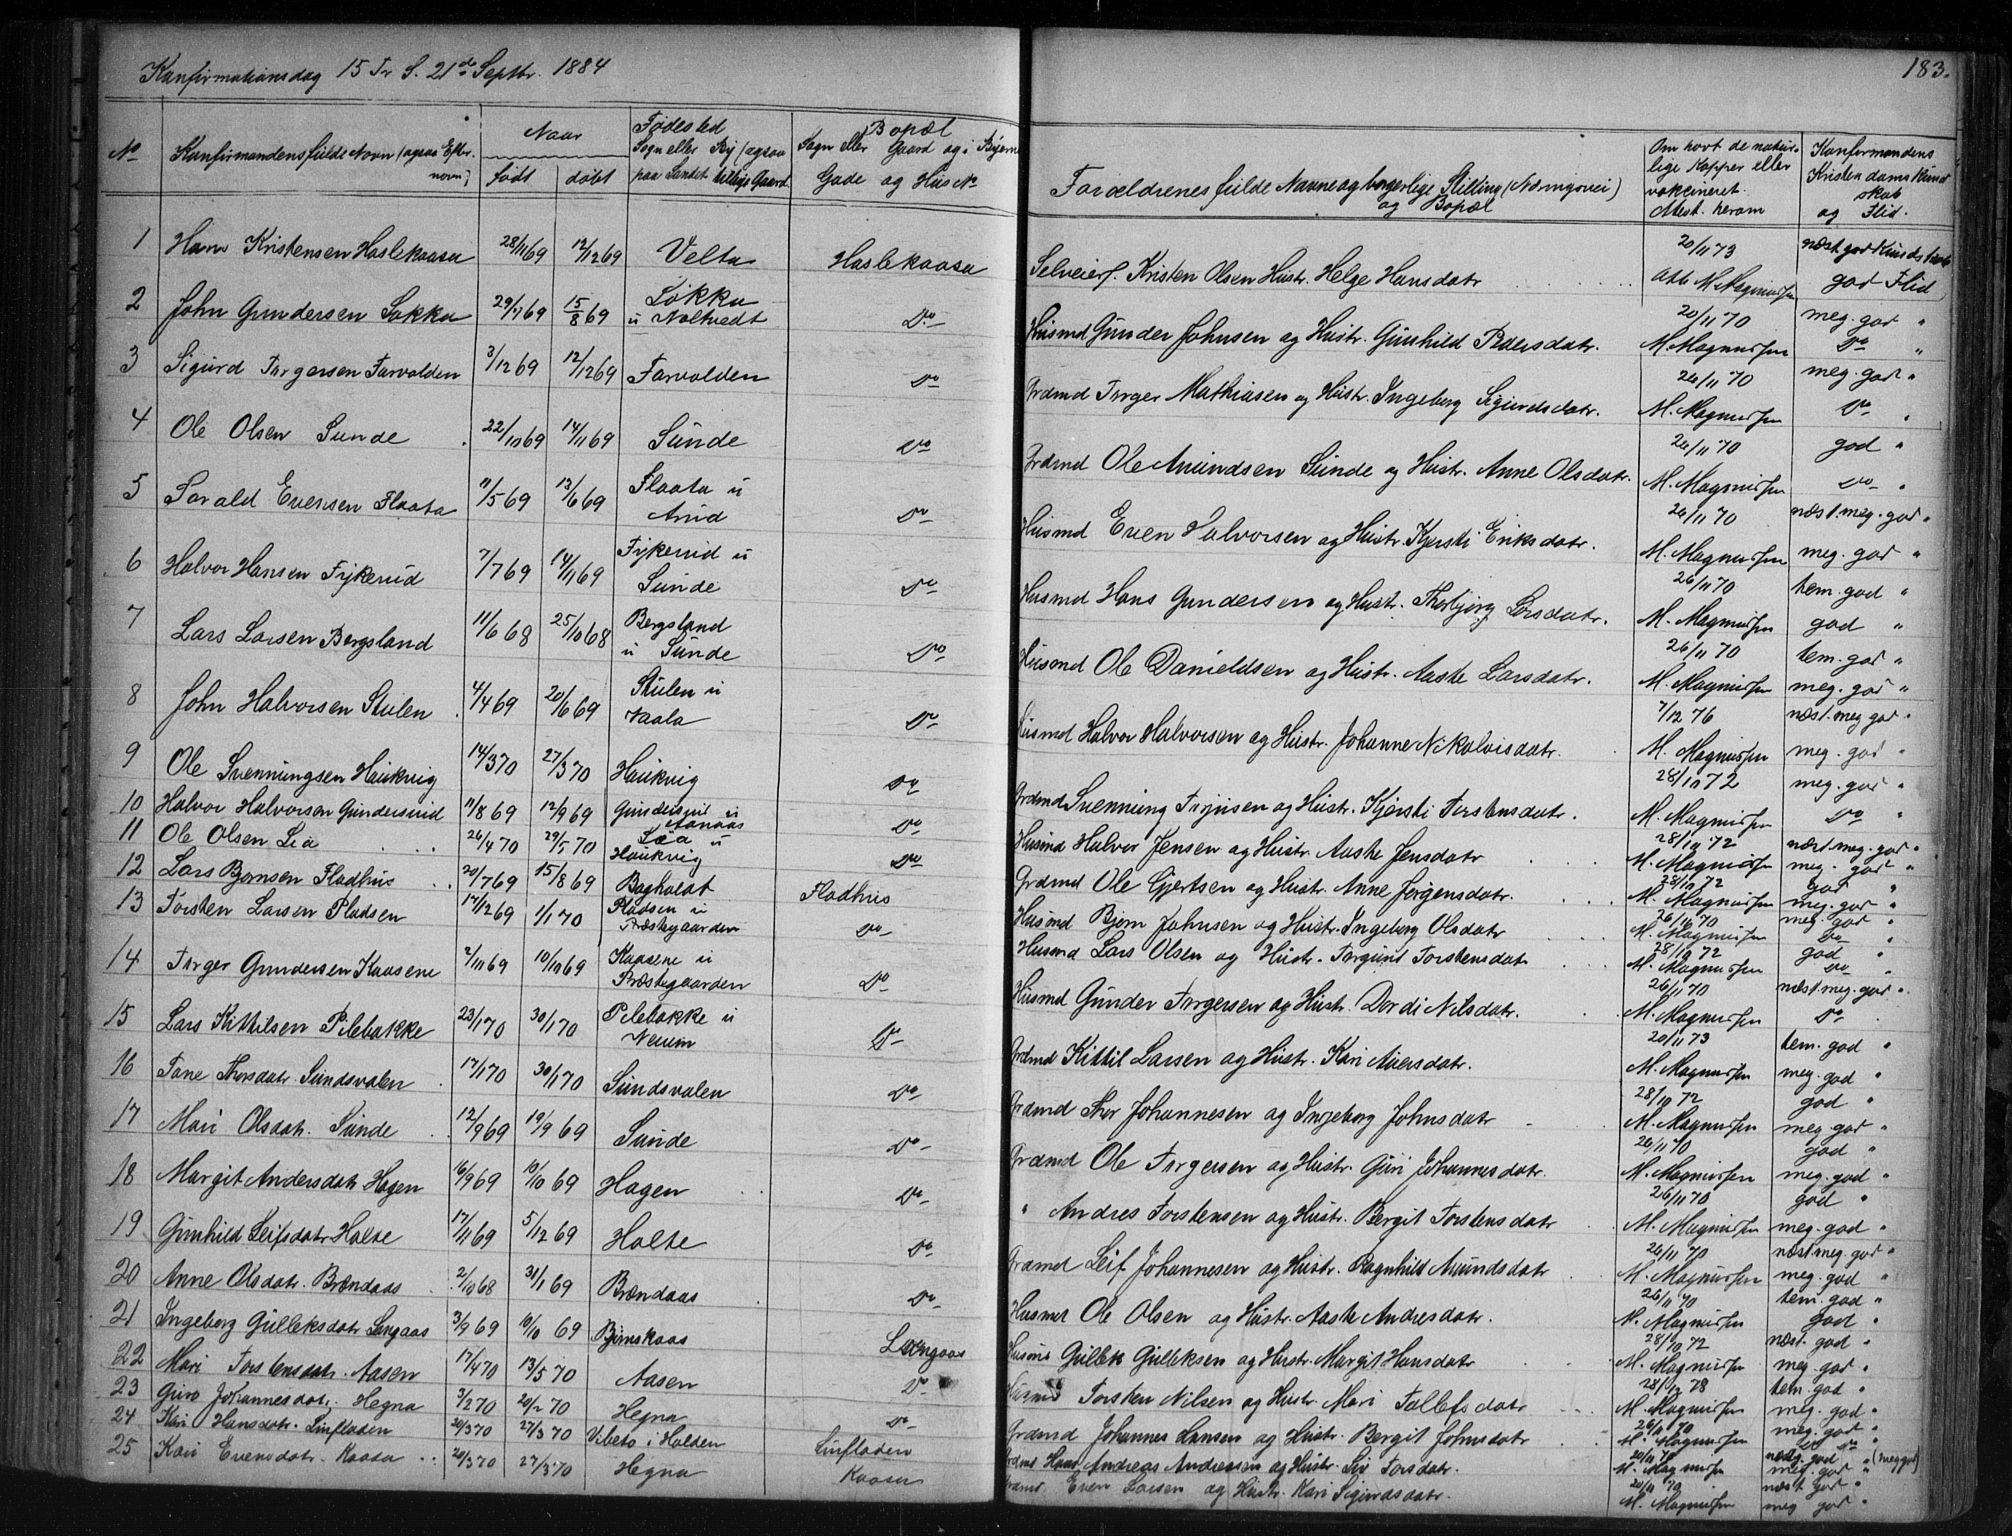 183.
Konfirmationsdag 15 Tr S. 21de Septbr. 1884
No Konfirmandens fulde Navn (ogsaa Efternavn) Naar født døbt Fødested Sogn eller By (ogsaa paa Landet tillige Gaard) Bopæl Sogn eller Gaard og i Byerne Gade og Hus No Forældrenes fulde Navne og borgerlige Stilling (Næringsvei) og Bopæl Om havt de naturlige Kopper eller vakcineret Attest herom Konfirmandens Kristendomskundskab og Flid.
1 Hans Kristensen Haslekaasa 28/11 69 12/12 69 Velta Haslekaasa Selveierf. Kristen Olsen Hustr. Helge Hansdatr 20/11 73 M. Magnussen næst god god Flid
2 John Gundersen Løkka 29/7 69 15/8 69 Løkka u Noltvedt Do Husmd Gunder Johnsen og Hustr. Gunhild Pedersdatr. 20/11 70 M. Magnussen meg. god " Do "
3 Sigurd Torgersen Farvolden 3/12 69 12/12 69 Farvolden Do Grdmd Torger Mathiasen og Hustr. Ingeborg Sigurdsdatr. 26/11 70 M. Magnussen meg. god " Do "
4 Ole Olsen Sunde 22/10 69 14/11 69 Sunde Do Grdmd Ole Amundsen Sunde og Hustr. Anne Olsdatr. 26/11 70 M. Magnussen god " Do "
5 Torald Evensen Flaata 11/5 69 13/6 69 Flaata u Do Husmd Even Halvorsen og Hustr. Kjersti Eriksdatr. 26/11 70 M. Magnussen næst. meg. god " meg. god "
6 Halvor Hansen Fykerud 7/7 69 14/11 69 Fykerud u Sunde Do Husmd Hans Gundersen og Hustr. Thorbjørg Larsdatr. 26/11 70 M. Magnussen tem. god " god "
7 Lars Larsen Bergsland 11/6 68 25/10 68 Bergsland u Sunde Do Husmd Ole Danieldsen og Hustr. Aaste Larsdatr. 26/11 70 M. Magnussen tem. god " meg. god "
8 John Halvorsen Stulen 4/4 69 20/6 69 Stulen u Do Husmd Halvor Halvorsen og Hustr. Johanne Nikolaisdatr. 7/12 76 M. Magnussen næst. meg god " meg. god "
9 Ole Svenningsen Haukvig 14/3 70 27/3 70 Haukvig Do Grdmd Svenning Torjusen og Hustr. Kjersti Torstensdatr. 28/10 72 M. Magnussen meg. god " Do "
10 Halvor Halvorsen Gundersrud 11/8 69 12/9 69 Gundersrud u Do Husmd Halvor Jensen og Hustr. Aaste Jensdatr 28/10 72 M. Magnussen næst. meg. god " meg. god "
11 Ole Olsen Lia 26/4 70 29/5 70 Lia u Haukvig Do Grdmd Ole Gjertsen og Hustr. Anne Jørgensdatr. 28/10 72 M. Magnussen god " meg. god "
12 Lars Bjørnsen Fladhus 20/7 69 15/8 69 Bagholdt Fladhus Husmd Bjørn Johnsen og Hustr. Ingeborg Olsdatr 26/11 70 M. Magnussen meg. god " Do "
13 Torsten Larsen Pladsen 17/12 69 1/1 70 Pladsen u Præstegaarden Do Husmd Lars Olsen og Hustr. Torgunt Torstensdatr 28/10 72 M. Magnussen god " Do "
14 Torger Gundersen Kaasene 2/10 69 10/10 69 Kaasene u Præstegaarden Do Husmd Gunder Torgersen og Hustr. Dordi Nilsdatr. 26/11 70 M. Magnussen næst. meg. god " Do
15 Lars Kittilsen Pilebakke 23/1 70 30/1 70 Pilebakke u Do Grdmd Kittil Larsen og Hustr. Kari Aversdatr. 20/11 73 M. Magnussen tem. god " meg. god "
16 Tone Thorsdatr. Sundsvalen 17/1 70 30/1 70 Sundsvalen Do Grdmd Thor Johannesen og Ingeborg Johnsdatr 28/10 72 M. Magnussen god " meg. god "
17 Mari Olsdatr. Sunde 12/9 69 19/9 69 Sunde Do Grdmd Ole Torgersen og Hustr. Guri Johannesdatr. 26/11 70 M. Magnussen god " meg. god "
18 Margit Andersdatr Hagen 16/9 69 10/10 69 Hagen Do " Andres Torstensen og Hustr. Bergit Torstensdatr 26/11 70 M. Magnussen god " meg. god "
19 Gunhild Leifsdatr Holte 17/11 69 5/12 69 Holte Do Grdmd Leif Johannesen og Hustr. Ragnhild Amundsdatr 26/11 70 M. Magnussen næst. meg. god " meg. god "
20 Anne Olsdatr. Brændaas 2/10 68 31/1 69 Brændaas Do Husmd Ole Olsen og Hustr. Aaste Andresdatr. 26/11 70 M. Magnussen tem. god " god "
21 Ingeborg Gulleksdatr Langaas 3/9 69 10/10 69 Bjørnskaas Langaas Husmd Gullek Gulleksen og Hustr. Margit Hansdatr 28/10 72 M. Magnussen næst. god " meg. god "
22 Mari Torstensdatr. Aasen 17/4 70 13/5 70 Aasen Do Husmd Torsten Nilsen og Hustr. Mari Tollefsdatr 28/12 78 M. Magnussen tem. god " meg. god "
23 Guro Johannesdatr. Hegna 3/2 70 20/2 70 Hegna Do Grdmd Johannes Hansen og Hustr. Bergit Johnsdatr 26/11 70 M. Magnussen meg. god " Do
24 Kari Hansdatr. Linfladen 20/3 70 27/3 70 Vibeto i Holden Linfladen Hans Andreas Andreasen og Hustr. Liv Torsdatr. 20/11 70 M. Magnussen god " (meg god) meg. god "
25 Kari Evensdatr. Kaasa 20/3 70 27/3 70 Hegna Kaasa Even Larsen og Hustr. Kari Sigurdsdatr. 20/11 70 M. Magnussen næst god " meg god "